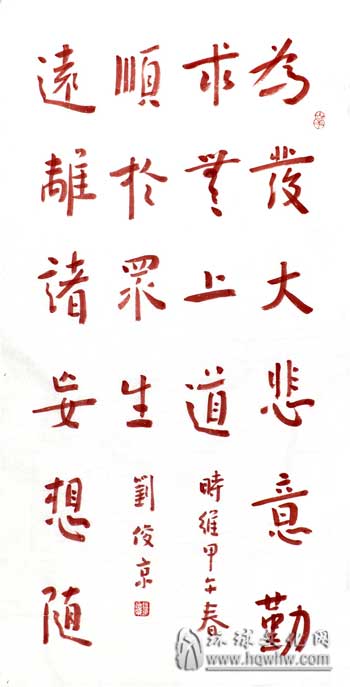 為發大悲意勤
求無上道
時維甲午春
遠離諸妄想隨
順於眾生
劉俊京
环球文化网
www.hqwhw.com